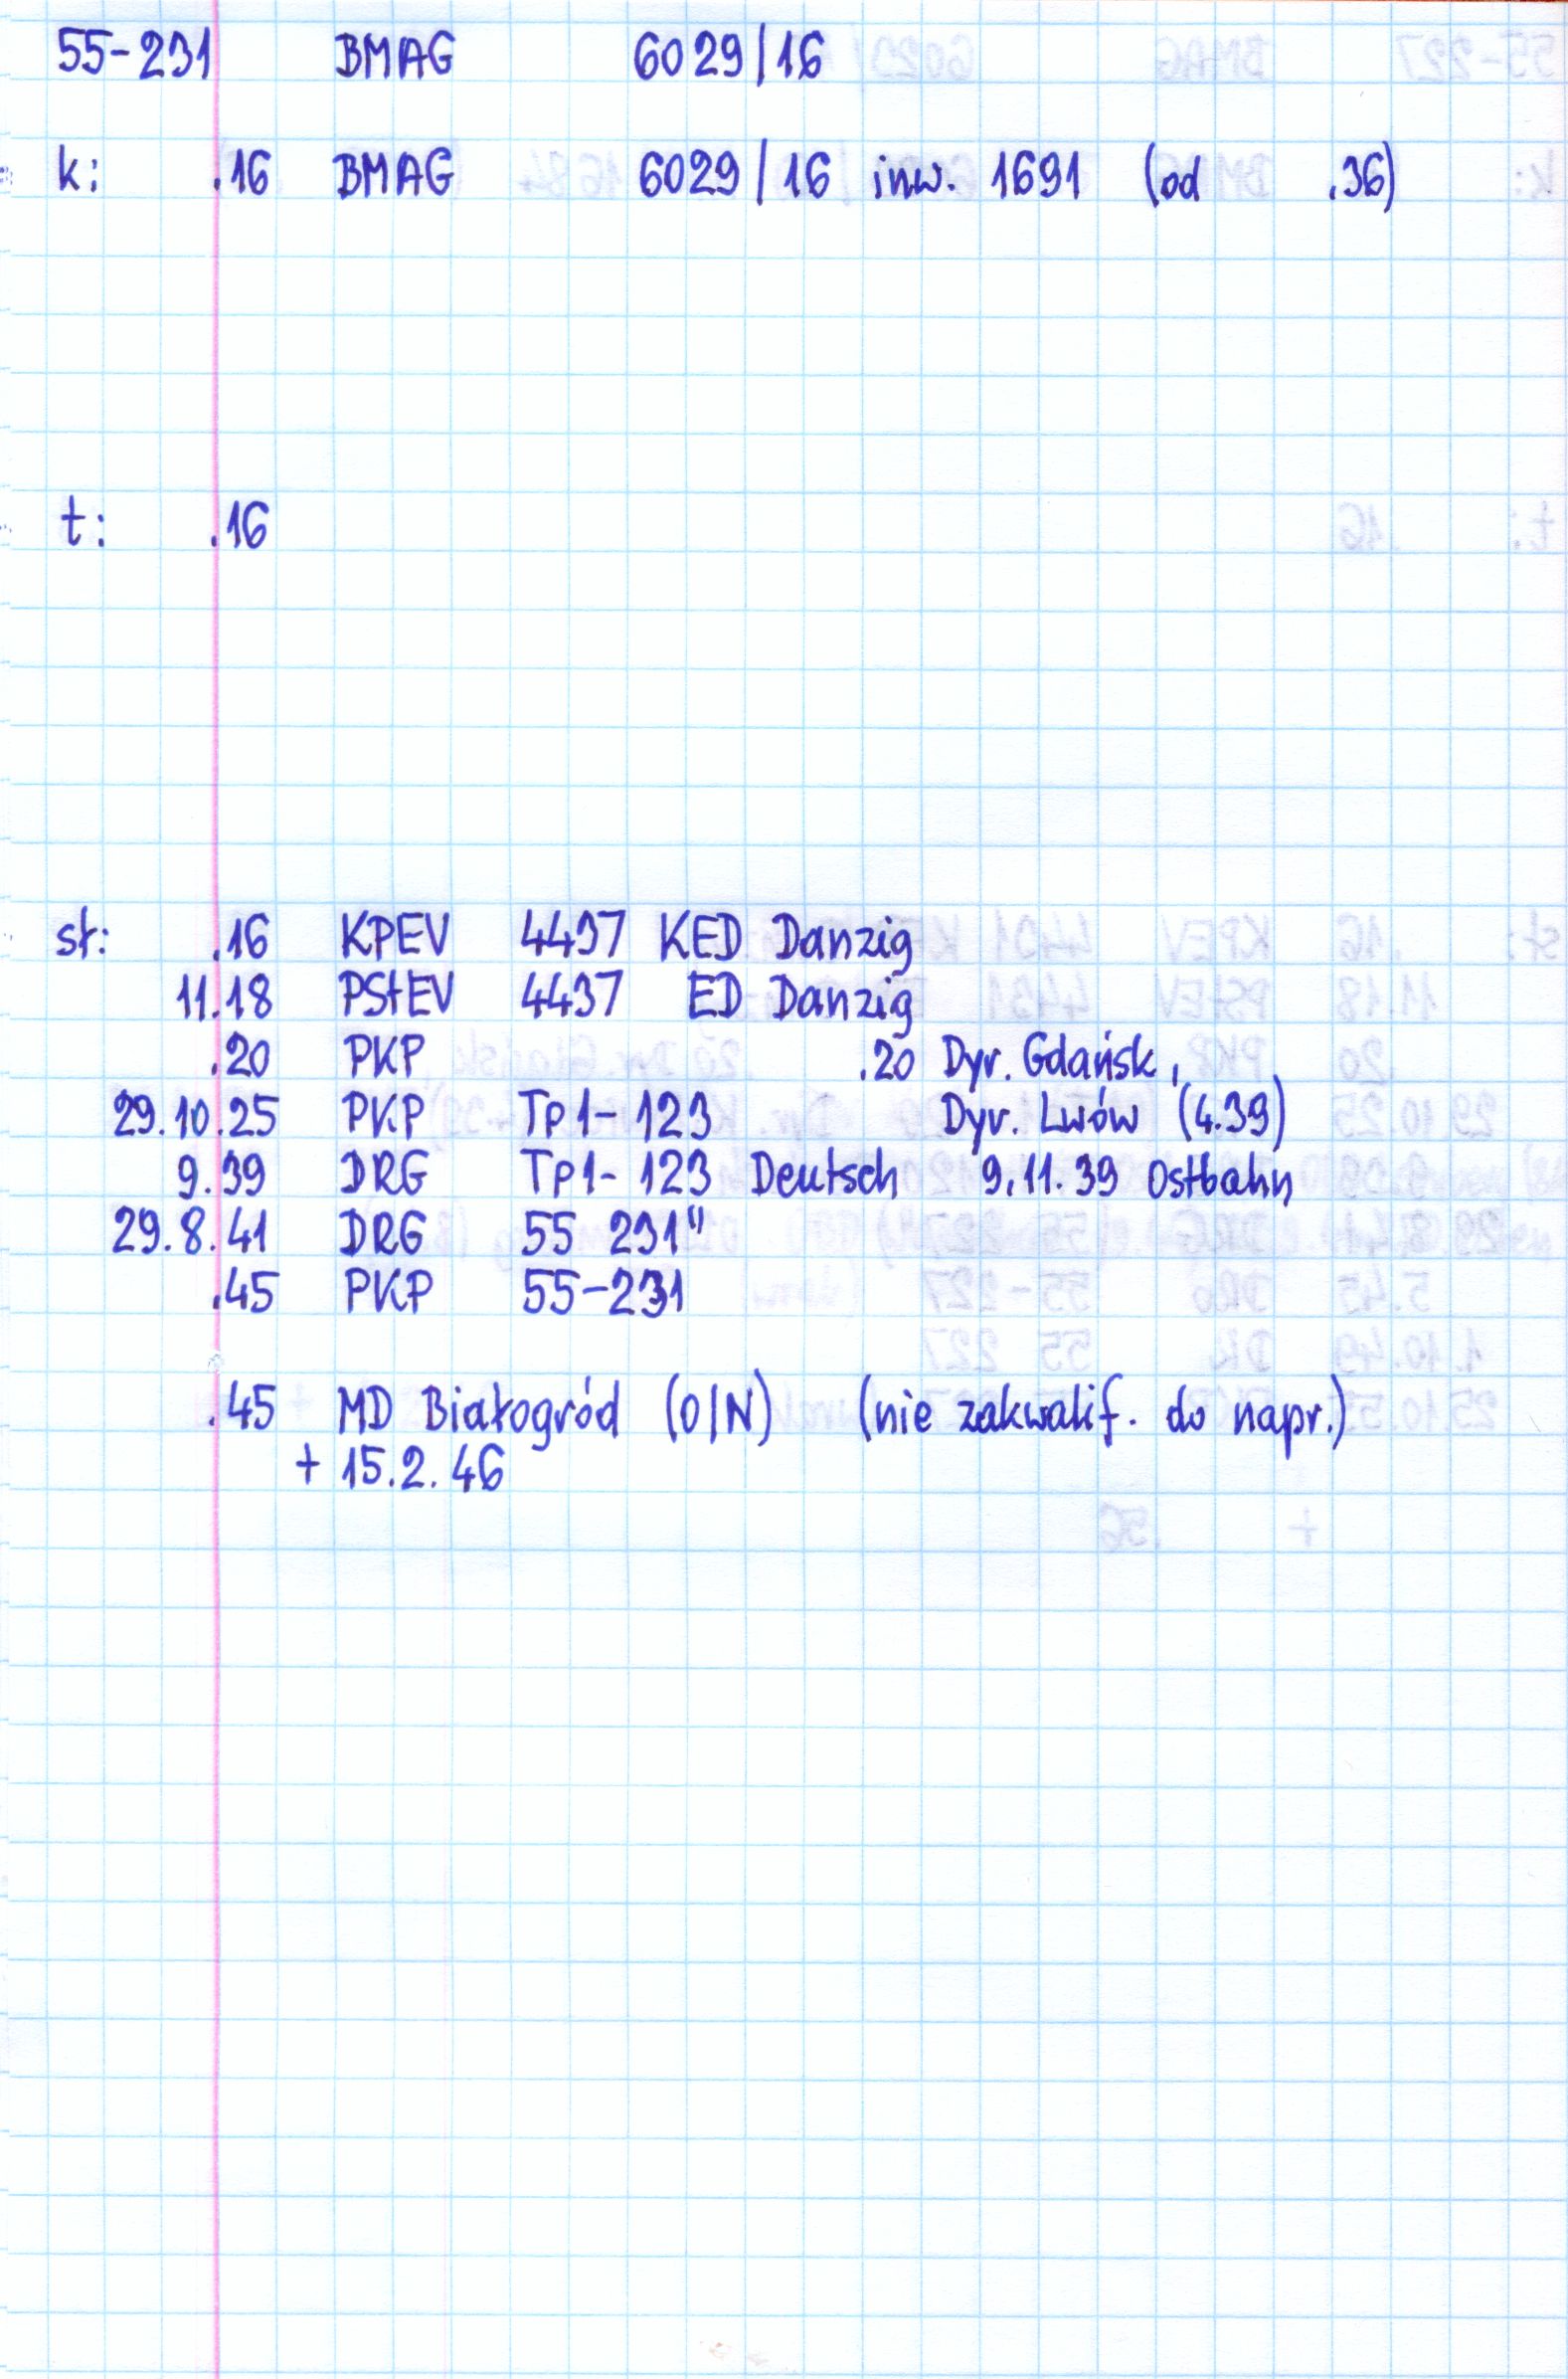 55-231 BMAG 6029/16
k: .16 BMAG 6029/16 inw. 1691 (od .36)
t: .16
st: .16 KPEV 4437 KED Danzig
11.18 PStEV 4437 ED Danzig
.20 PKP .20 Dyr. Gdańsk,
29.10.25 PKP Tp1-123 Dyr. Lwów (4.39)
9.39 DRG Tp1-123 Deutsch 9.11.39 Ostbahn
29.8.41 DRG 55 231"
.45 PKP 55-231
.45 MD Białogród (O/N) (nie zakwalif. do napr.)
+ 15.2.46